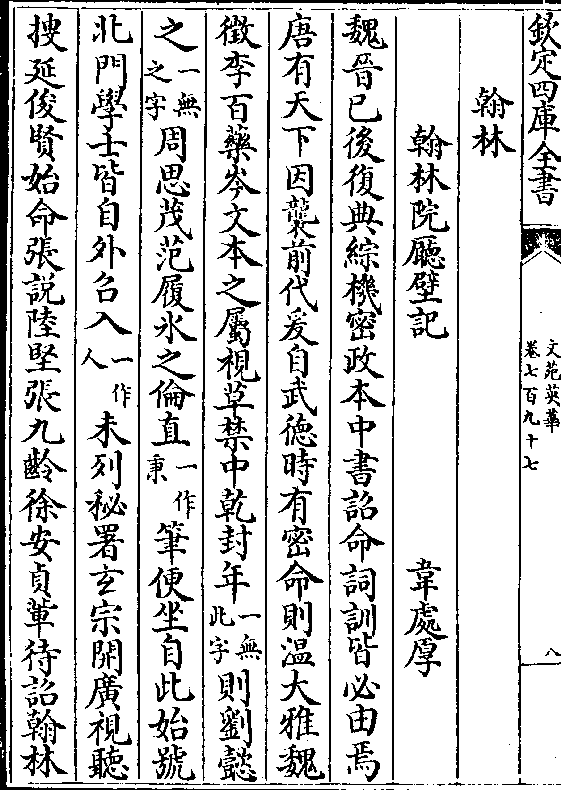 欽定四庫全書
文苑英華
卷七百九十七
八
翰林
翰林院廳壁記
韋處厚
魏晉已後復典綜機密政本中書詔命詞訓皆必由焉
唐有天下因襲前代爰自武德時有密命則溫大雅魏
徵李百藥岑文本之屬視草禁中乾封年一無此字則劉懿
之一無之字周思茂范履氷之倫直一作秉筆便坐自此始號
北門學士皆自外召入一作人未列秘署玄宗開廣視聽
搜延俊賢始命張説陸堅張九齡徐安貞軰待詔翰林